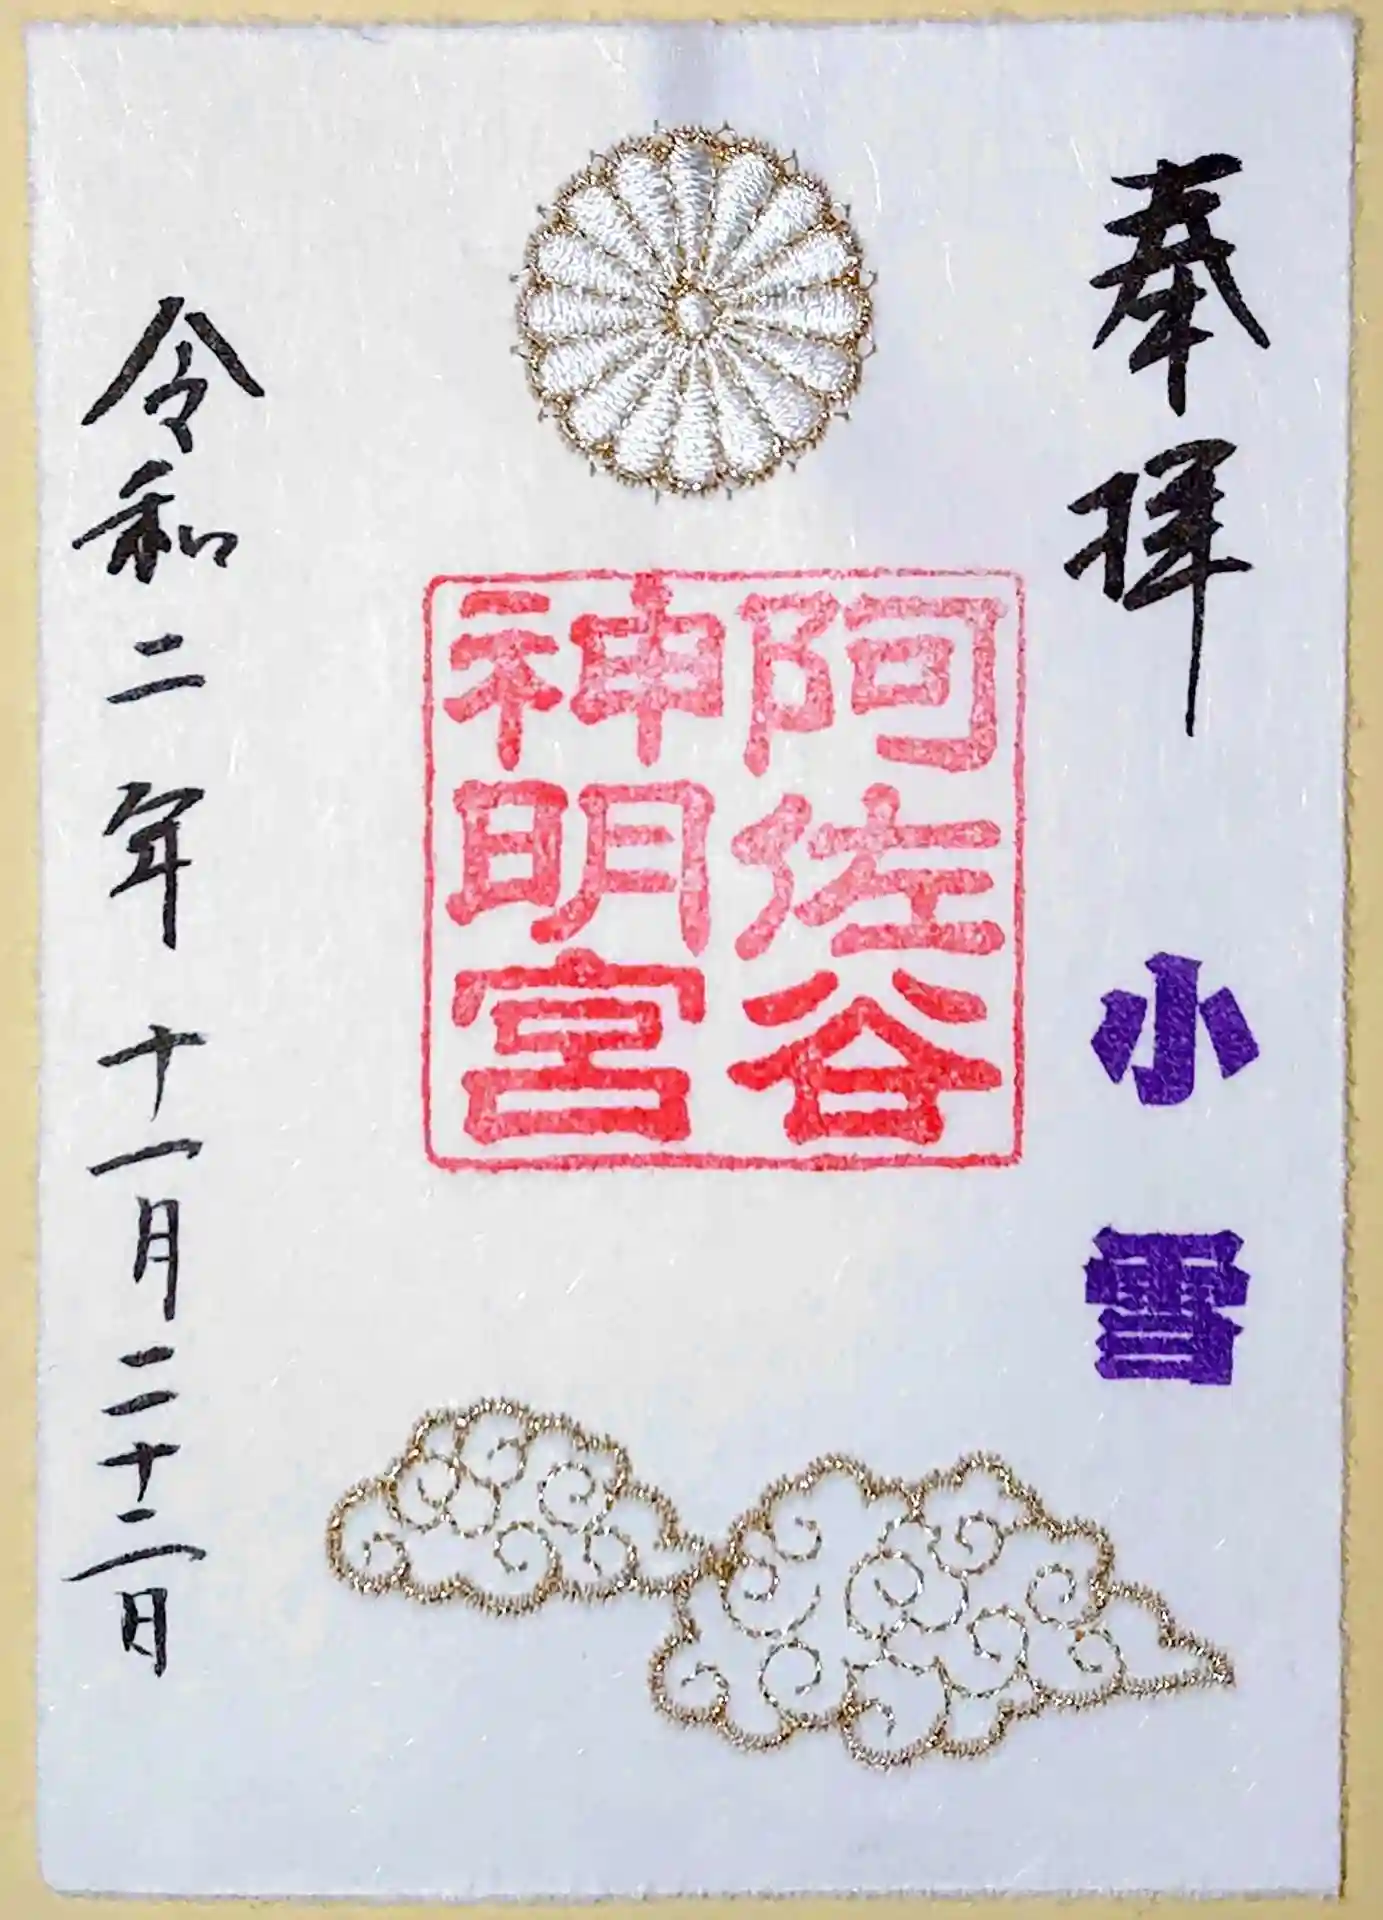 奉拝
小雪
阿佐谷
神明宮
令和二年十一月二十二日